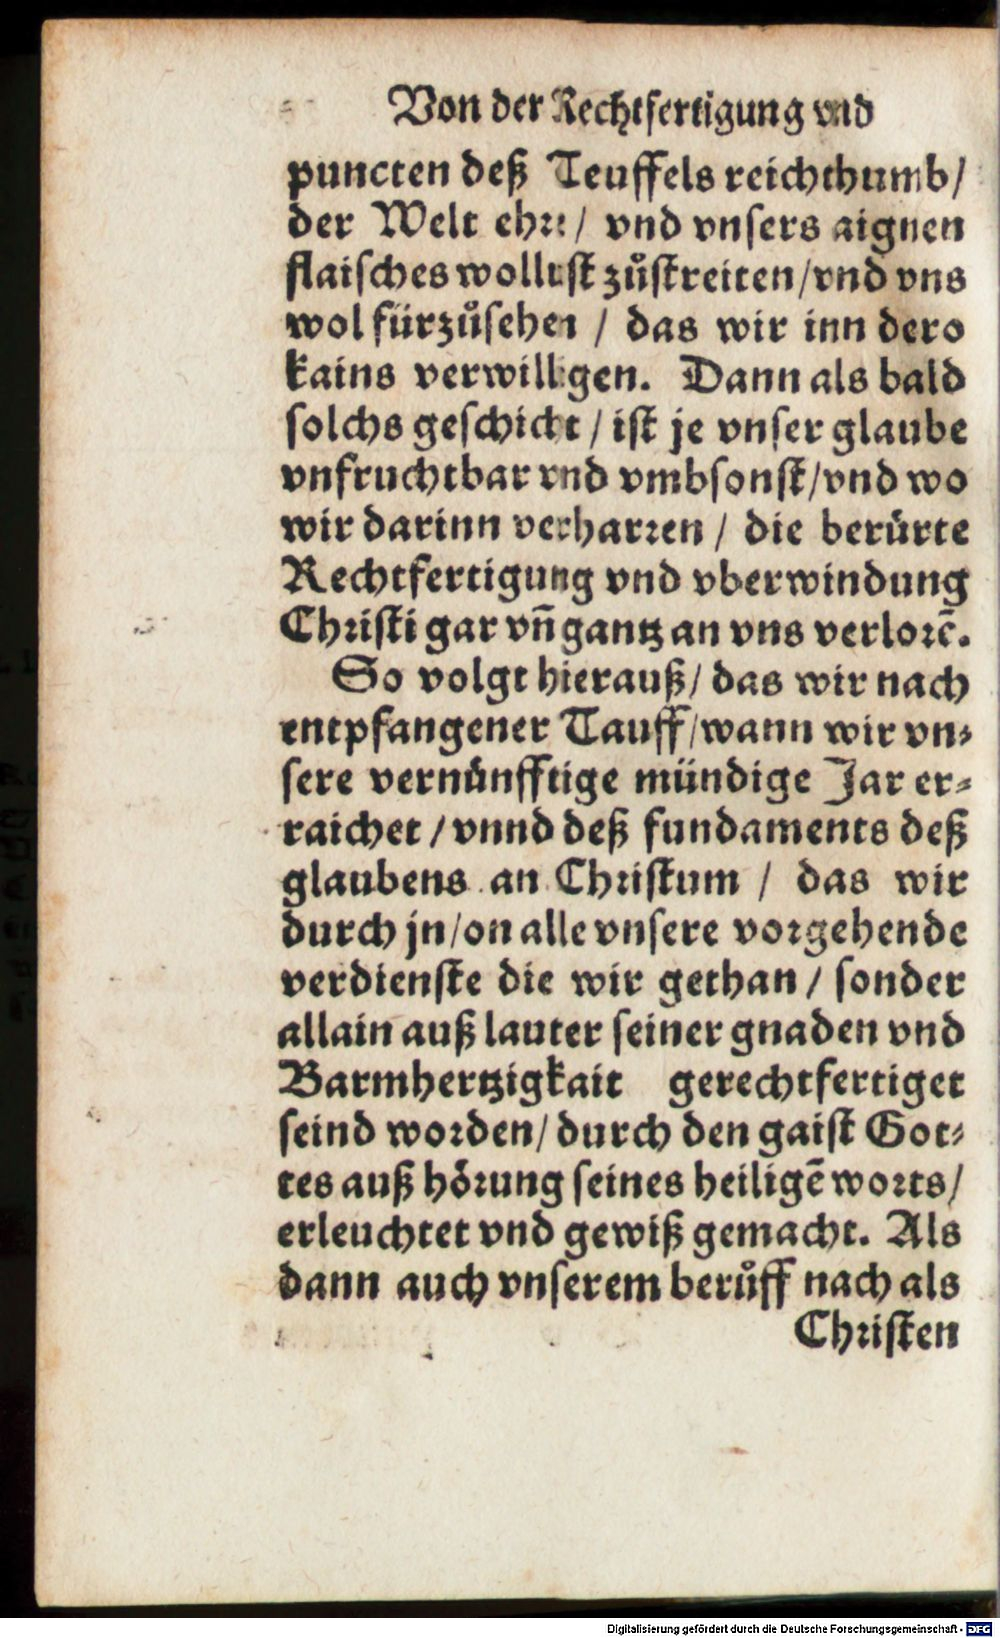 Von der Rechtfertigung vnd
puncten deß Teuffels reichthumb/
der Welt ehre/ vnd vnsers aignen
flaisches wollust zůstreiten/vnd vns
wol fürzůsehen / das wir inn dero
kains verwilligen. Dann als bald
solchs geschicht / ist je vnser glaube
vnfruchtbar vnd vmbsonst/vnd wo
wir darinn verharren / die berürte
Rechtfertigung vnd vberwindung
Christi gar vñ gantz an vns verlorẽ.
So volgt hierauß/ das wir nach
entpfangener Tauff/wann wir vn-
sere vernünfftige mündige Jar er-
raichet / vnnd deß fundaments deß
glaubens an Christum / das wir
durch jn/on alle vnsere vorgehende
verdienste die wir gethan / sonder
allain auß lauter seiner gnaden vnd
Barmhertzigkait gerechtfertiget
seind worden/durch den gaist Got-
tes auß hörung seines heiligẽ worts/
erleuchtet vnd gewiß gemacht. Als
dann auch vnserem berůff nach als
Christen
Digitalisierung gefördert durch die Deutsche Forschungsgemeinschaft - DFG